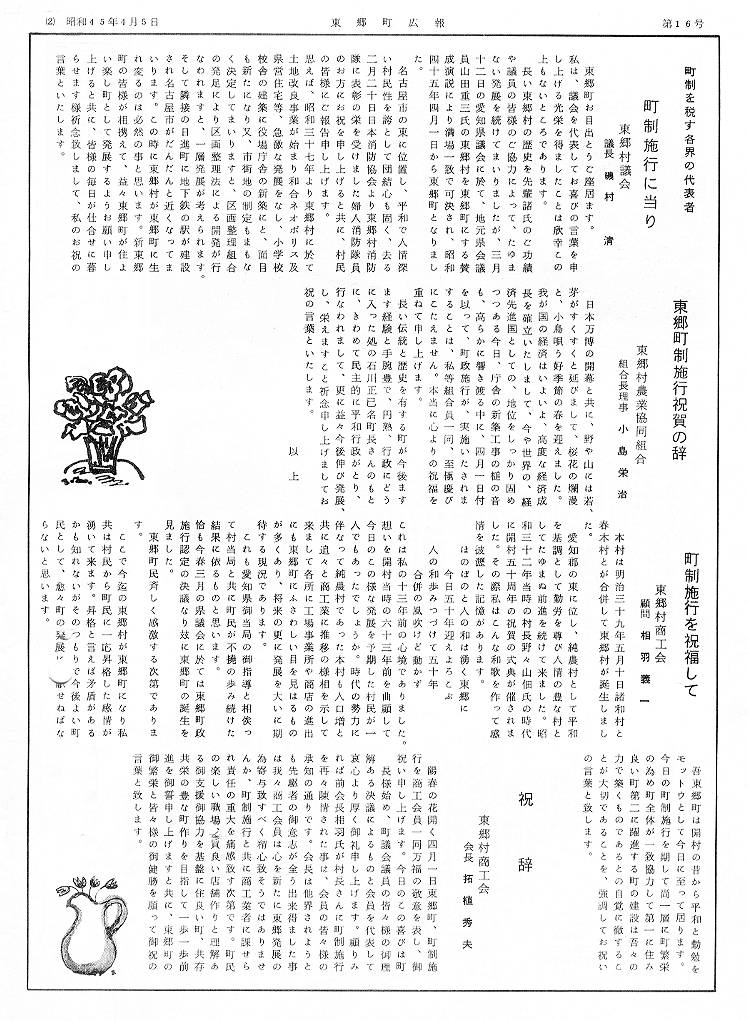 (2) 昭和45年4月5日
東郷町広報
第16号
町制を祝す各界の代表者
町制施行に当り
東郷村議会
議長 磯村 清
東郷町お目出とうご座居ます。
私は、議会を代表してお喜びの言葉を申
し上げる光栄を得ましたことは欣幸この
上もないところであります。
長い東郷村の歴史を先輩諸氏のご功績
や議員の皆様のご協力によって、たゆま
ない発展を続けてまいりましたが、三月
十二日の愛知県議会に於て、地元県会議
員山田重三氏の東郷村を東郷町にする賛
成演説により満場一致で可決され、昭和
四十五年四月一日から東郷町となりまし
た。
名古屋市の東に位置し、平和で人情深
い村民性を誇として団結心も固く、去る
二月二十日日本消防協会より東郷村消防
隊に表彰の栄を受けました婦人消防隊員
のお方にお祝を申し上げると共に、村民
の皆様にご報告申し上げます。
思えば、昭和三十七年より東郷村に於て
土地改良事業が始まり和合ネオポリス及
県営住宅等、急敵な発展をなし、小学校
校舎の建築に役場庁舎の新築にと、面目
も新たになり又、市街地の制定もまもな
く決定してまいりますと、区画整理組合
の発足により区画整理法による開発が行
なわれますと、一層発展が考えられます。
そして隣接の日進町に地下鉄の駅が建設
され名古屋市がだんだんと近くなってま
いります。この時に東郷村が東郷町に生
れ変るのは必然の事と思います。新東郷
町の皆様が相携えて、益々東郷町が住よ
い楽し町として発展するようお願い申し
上げると共に、皆様の毎日が仕合せに暮
らせます様祈念致しまして、私のお祝の
言葉といたします。
東郷町制施行祝賀の辞
東郷村農業協同組合
組合長理事 小島 栄治
日本万博の開幕と共に、野や山には若、
芽がすくすくと延びまして、桜花の爛漫
と、小鳥唄う好季節の春を迎えました。
我が国の経済はいよいよ、高度な経済成
長を確立いたしまして、今や世界の、経
済先進国としての、地位をしっかり固め
つつある今日、庁舎の新築工事の槌の音
も、高らかに響き渡る中に、四月一日付
を以って、町政施行が、実施いたされま
することは、私等組合員一同、至極慶び
にこたえません。本当に心よりの祝福を
重ねて申し上げます。
長い伝統と歴史を有する町が今後ます
ます経験と手腕豊で、円熟、行政にどう
に入った処の石川正巳名町長さんのもと
に、きわめて民主的に平和行政がとり、
行なわれまして、更に益々今後伸び発展、
し、栄えますこと祈念申し上げましてお
祝の言葉といたします。
以上
町制施行を祝福して
東郷村商工会
顧問 相羽義一
本村は明治三十九年五月十日諸和村と
春木村とが合併して東郷村が誕生しまし
た。
愛知郡の東に位し、純農村として平和
を基調として勤労を尊び人情の豊な村と
してたゆまぬ前進を続けて来ました。昭
和三十二年当時の村長野々山佃氏の時代
に開村五十周年の祝賀の式典が催されま
した。その際私はこんな和歌を作って感
情を披瀝した記憶があります。
ほのぼのと人の和は湧く東郷に
今日五十年迎えよろこぶ
人の和歩みつづけて五十年
合併の風吹けど動かず
これは私の十三年前の心境でありました。
想いを開村当時の六十三年前を曲顧して
今日のこの様な発展を予期した村民が一
人でもあったでしょうか。時代の勢力に
伴なって純農村であった本村も人口増と
共に遂々と商工業に推移の様相を示して
来まして各所に工場事業所や商店の進出
にも東郷町にふさわしい目を見はるもの
が多くあり、将来の更に発展を大いに期
待する現況であります。
これも愛知県御当局の御指導と相俟っ
て村当局と共に町民が不撓の歩み続けた
結果に依るものと思います。
恰も今春三月の県議会に於ては東郷町政
施行認定の決議なり玆に東郷町の誕生を
見ました。
東郷町民斉しく感激する次第でありま
す。
ここで今迄の東郷村が東郷町になり私
共は村民から町民に一応昇格した感情が
湧いて来ます。昇格と言えば矛盾がある
かも知れないがそのつもりで今後よい町
民として、愈々町の発展に 献せねばな
らないと思います。
吾東郷町は開村の昔から平和と勤勉を
モットウとして今日に至って居ります。
今日の町制施行を期して尚一層に町繁栄
の為め町全体が一致協力して第一に住み
良い町第二に躍進する町の建設は吾々の
力で築くものであるとの自覚に徹するこ
とが大切であることを、強調してお祝い
の言葉と致します。
祝辞
東郷村商工会
会長 拓植秀夫
陽春の花開く四月一日東郷町、町制施
行を商工会員一同万福の敬意を表し、御
祝い申し上げます。今日のこの喜びは町
長様始め、町議会議員の皆々様の御理
解ある決議によるものと会員を代表して
衷心より厚く御礼申し上げます。顧りみ
れば前会長相羽氏が村長さんに町制施行
を再々陳情された事は、会員の皆々様の
承知の通りです。会長は他界されようと
も先駆者の御意志が全う出来得ました事
は我々商工会員は心を新たに東郷発展の
為寄与致すべく宿心致そうではありませ
んか、町制施行と共に商工業者に課せら
れ責任の重大を痛感致す次第です。町民
の楽しい職場、買良い店舗作りと理解あ
る御支援御協力を基盤に住良い町、共存
共栄の豊な町作りを目指して一歩一歩前
進を御誓申し上げますと共に、東郷町の
御繁栄と皆々様の御健勝を願って御祝の
言葉と致します。